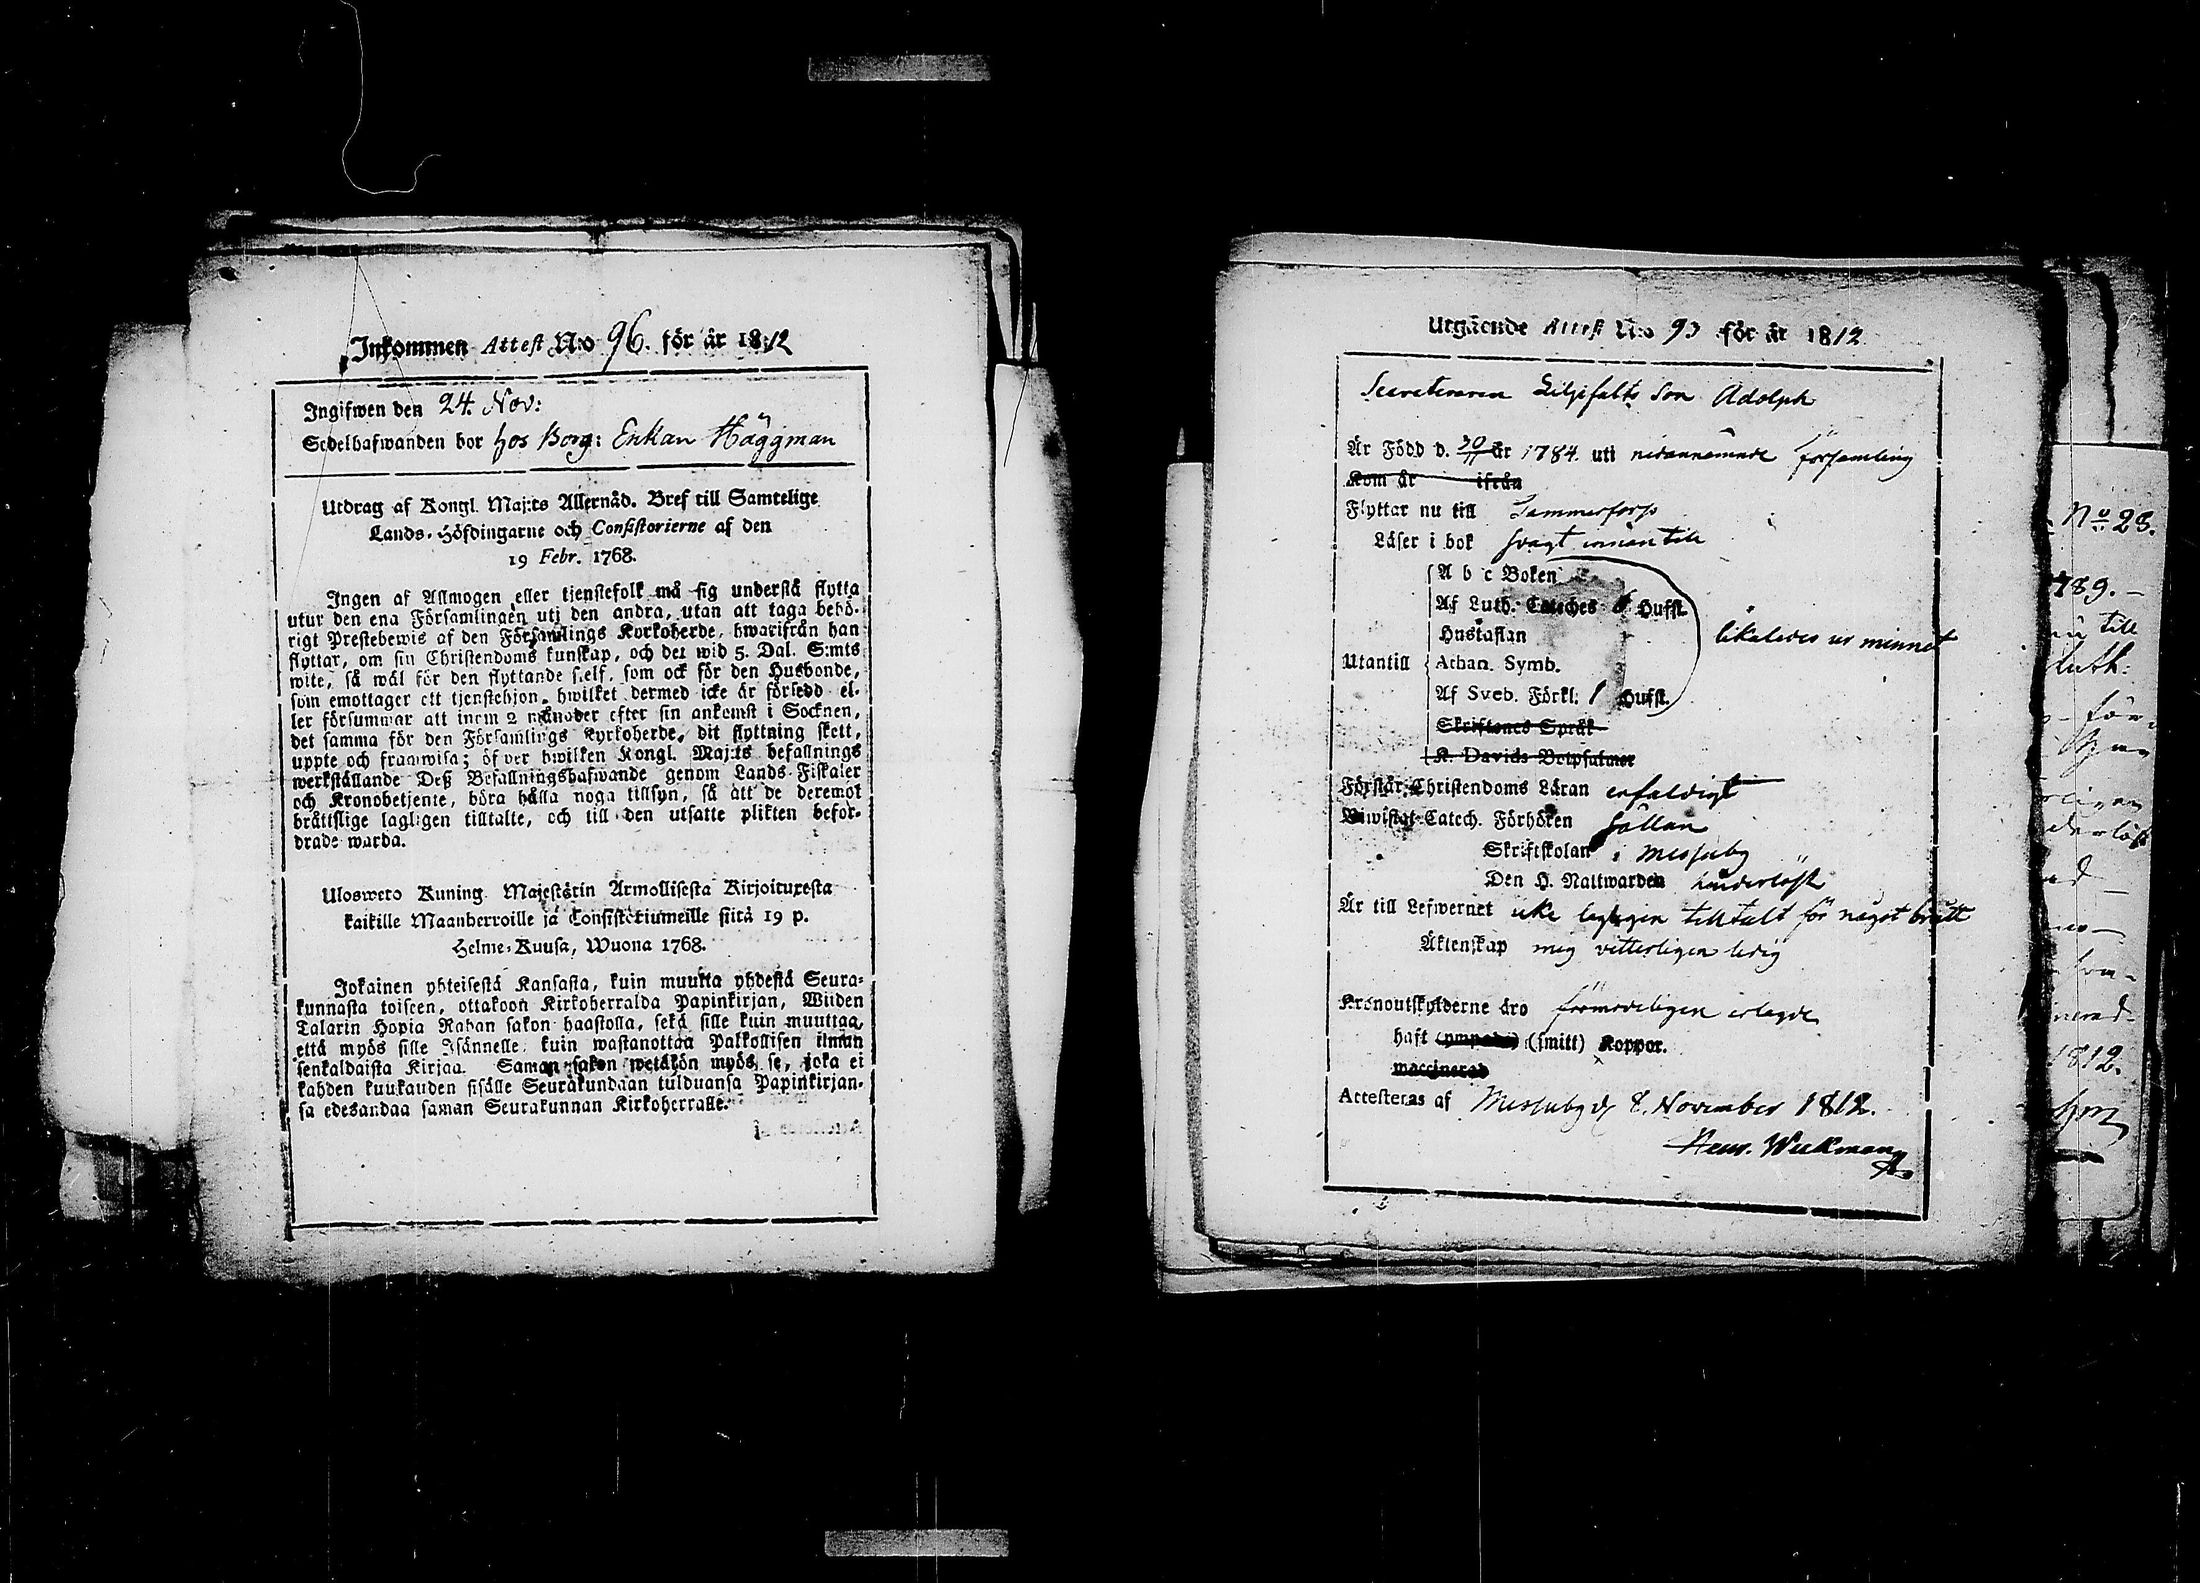 Inkommen Attest N:o 96. för år 1812
Ingifwen den 24. Nov:
Sedelhafwanden bor hos Borg: Enkan Häggman
Utdrag af Kongl. Maj:ts Allernåd. Bref till Samtelige
Lands-Höfdingarne och Consistorierne af den
19 Febr. 1768.
Ingen af Allmogen eller tjenstefolk må sig understå flytta
utur den ena Församlingen uti den andra, utan att taga behö-
rigt Prestebewis af den Församlings Kyrkoherde, hwarifrån han
flyttar, om sin Christendoms kunskap, och det wid 5. Dal. S:mts
wite, så wäl för den flyttande sielf, som ock för den Husbonde,
som emottager ett tjenstehjon, hwilket dermed icke är försedd el-
ler försummar att inom 2 månader efter sin ankomst i Socknen,
det samma för den Församlings Kyrkoherde, dit flyttning skett,
uppte och framwisa; öfwer hwilken Kongl. Maj:ts befallnings
werkställande Deß Befallningshafwande genom Lands-Fiskaler
och Kronobetjente, böra hålla noga tillsyn, så att de deremot
bråttslige lagligen tilltalte, och till den utsatte plikten befor-
drade warda.
Ulosweto Kuning. Majestätin Armollisesta Kirjoituxesta
kaikille Maanherroille ja Consistoriumeille siitä 19 p.
Helme-Kuusa, Wuona 1768.
Jokainen yhteisestä Kansasta, kuin muutta yhdestä Seura-
kunnasta toiseen, ottakoon Kirkoherralda Papinkirjan, Wiiden
Talarin Hopia Rahan sakon haastolla, sekä sille kuin muuttaa,
että myös sille Isännelle, kuin wastanottaa Palkollisen ilman
senkaldaista Kirjaa. Saman sakon wetäkön myös se, joka ei
kahden kuukauden sisälle Seurakundaan tulduansa Papinkirjan-
sa edesandaa saman Seurakunnan Kirkoherralle.
Utgående Attest N:o 93 för år 1812
Secreteraren Liljefalts Son Adolph
Är Född d. 30/11 år 1784. uti nedannämnde församling
Kom år ifrån
Flyttar nu till Tammerfors
Läser i bok svagt innantill
A b c Boken
Af Luth. Cateches 6 Hufst.
Hustaflan
Utantill Athan. Symb. likaledes ur minnet
Af Sveb. Förkl: 1 Hufst.
Skriftenes Språk
K. Davids Botpsalmer
Förstår Christendoms Läran enfaldigt
Biwistat Catech. Förhören sällan
Skriftskolan i Messuby
Den H. Nattwarden hinderlöst
Är till Lefwernet icke lagligen tilltalt för något brått
Äktenskap mig vitterligen ledig
Kronoutskylderne äro förmodeligen erlagde
haft (ympade) (smitt) Koppor.
waccinerad
Attesteras af Messuby d. 8. November 1812.
Henr. Weckman
No 28.
789.
nu till
Luth:
för
1812.